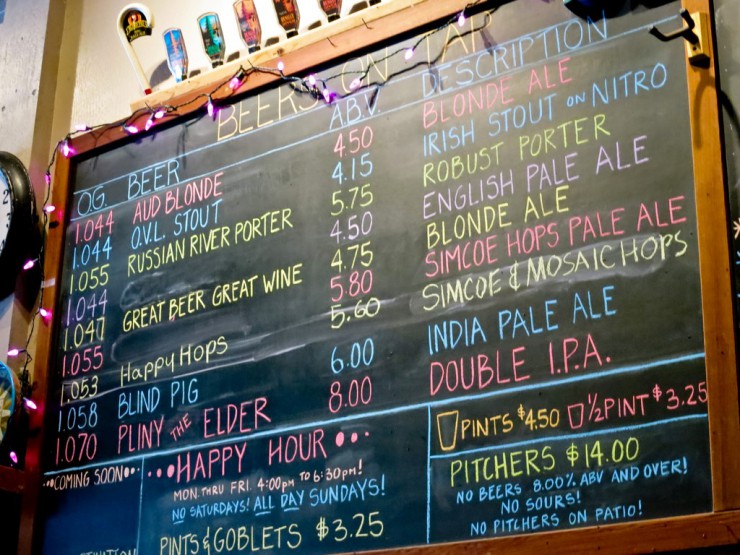 BEERS ON TAP
O.G. BEER A.B.V. DESCRIPTION
1.044 AUD BLONDE 4.50 BLONDE ALE
1.044 O.V.L. STOUT 4.15 IRISH STOUT ON NITRO
1.055 RUSSIAN RIVER PORTER 5.75 ROBUST PORTER
1.044 4.50 ENGLISH PALE ALE
1.047 GREAT BEER GREAT WINE 4.75 BLONDE ALE
1.055 5.80 SIMCOE HOPS PALE ALE
1.053 Happy Hops 5.60 SIMCOE & MOSAIC HOPS
1.058 BLIND PIG 6.00 INDIA PALE ALE
1.070 PLINY THE ELDER 8.00 DOUBLE I.P.A.
COMING SOON
HAPPY HOUR
MON. THRU FRI. 4:00pm To 6:30pm!
NO SATURDAYS! ALL DAY SUNDAYS!
PINTS & GOBLETS $3.25
PINTS $4.50 1/2 PINT $3.25
PITCHERS $14.00
NO BEERS 8.00% ABV AND OVER!
NO SOURS!
NO PITCHERS ON PATIO!